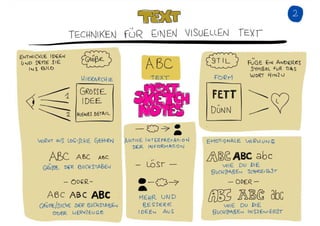 TEXT
2
TECHNIKEN FÜR EINEN VISUELLEN TEXT
ENTWICKLE IDEEN
UND SETZE SIE
INS BILD
GRÖẞE
HIERARCHIE
GROẞE
IDEE
KLEINES DETAIL
ABC
TEXT
NEXT
SKETCH
NOTES
STIL
FORM
FÜGE EIN ANDERES
SYMBOL FÜR DAS
WORT HINZU
FETT
DÜNN
WIRKT AUF
GEHIRN
ABC ABC ABC
GRÖẞE DER BUCHSTABEN
- ODER -
ABC ABC ABC
GRÖẞE/DICKE DER BUCHSTABEN
ODER WERKZEUGE
AKTIVE INTERPRETATION
DER INFORMATION
- LÖST -
MEHR UND
BESSERE
IDEEN AUS
EMOTIONALE WIRKUNG
ABC ABC abc
WIE DU DIE
BUCHSTABEN SCHREIBST
- ODER -
ABC ABC abc
WIE DU DIE
BUCHSTABEN